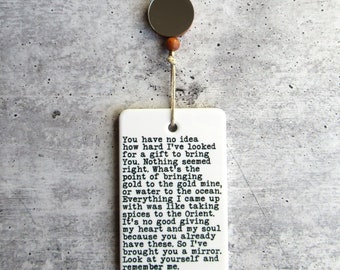 You have no idea
how hard I've looked
for a gift to bring
You. Nothing seemed
right. What's the
point of bringing
gold to the gold mine,
or water to the ocean.
Everything I came up
with was like taking
spices to the Orient.
It's no good giving
my heart and my soul
because you already
have these. So I've
brought you a mirror.
Look at yourself and
remember me.